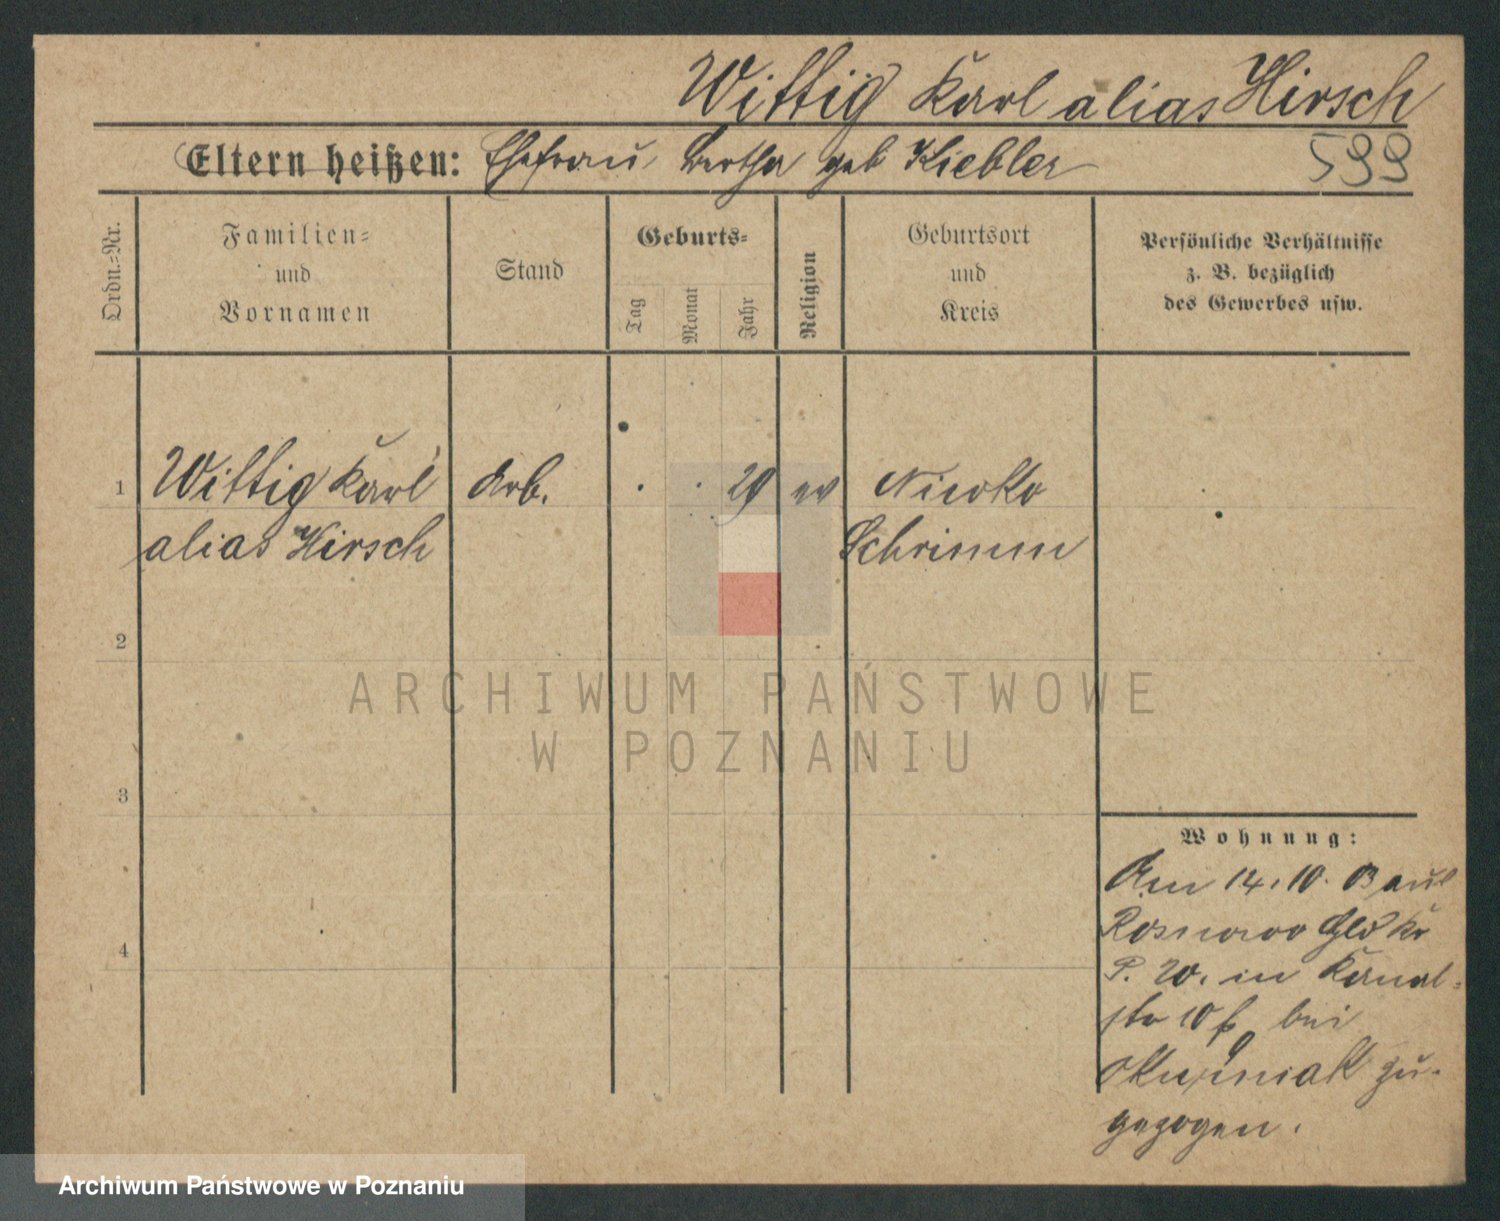 Wittig Karl alias Hirsch
Eltern heißen: Ehefrau Bertha geb Kiebler
599
Ordn.=Nr.
Familien=
und
Vornamen
Stand
Geburts=
Tag
Monat
Jahr
Religion
Geburtsort
und
Kreis
Persönliche Verhältnisse
z. B. bezüglich
des Gewerbes usw.
1 Wittig Karl Arb. . . ev
alias Hirsch Schrimm
2
3
4
ARCHIWUM PAŃSTWOWE
W POZNANIU
Wohnung:
Am 14. 10. 03 aus
Rosnowo Kr
P. W. in Kanal=
str 10 bei
zu=
gezogen.
Archiwum Państwowe w Poznaniu